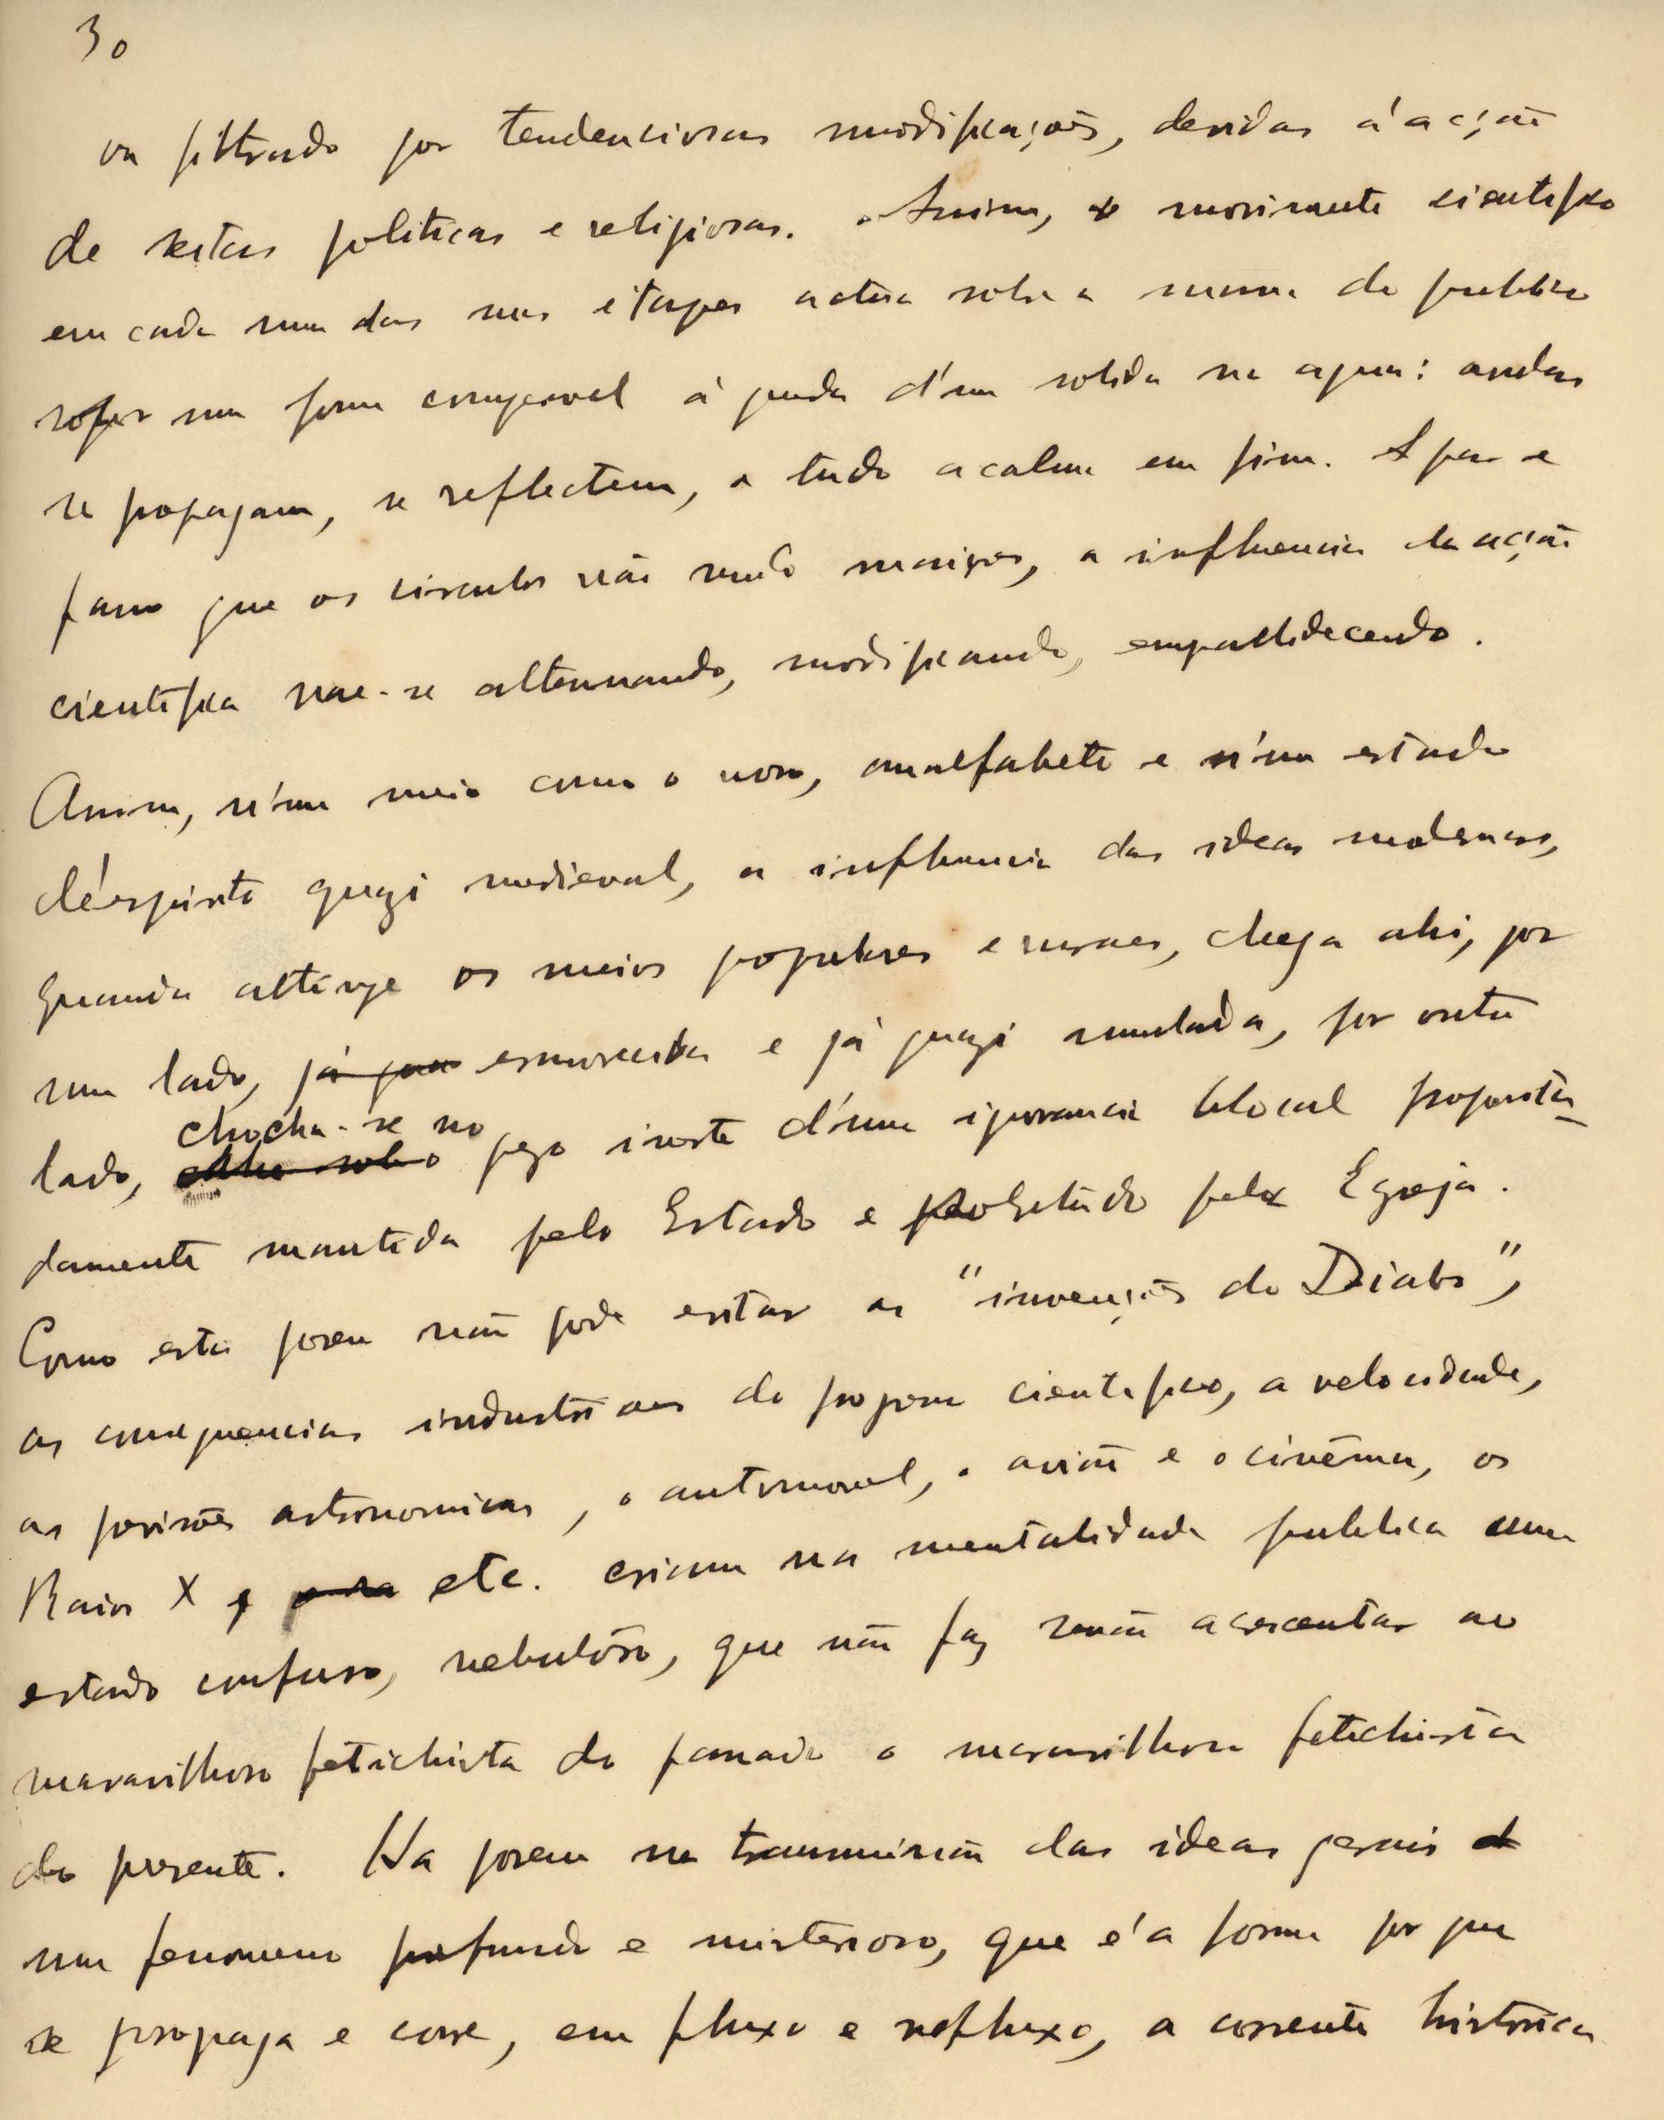 30
ou filtrado por tendenciosas modificações, devidas á acção
de seitas politicas e religiosas. Assim, o movimento cientifico
em cada uma das suas étapes actua sobre a massa do publico
sofre uma forma comparavel á queda d'um solido na agua: ondas
se propagam, se reflectem, e tudo acalma em fim. A par e
passo que os circulos vão sendo maiores, a influencia da acção
cientifica vae-se attenuando, modificando, empallidecendo.
Assim, n'um meio como o nosso, analfabeto e n'um estado
d'espirito quazi medieval, a influencia das ideas modernas,
quando attinge os meios populares e ruraes, chega ahi, por
um lado, já qua esmorecida e já quazi annulada, por outro
chocha-se no
lado, pégo inerte d'uma ignorancia blocal proposita-
damente mantida pelo Estado e projetado pela Egreja.
Como esta porem não pode evitar as "invenções do Diabo",
as consequencias industriaes do progresso cientifico, a velocidade,
as previsões astronomicas, o automovel, o avião e o cinéma, os
Raios X e etc. criam na mentalidade publica um
estado confuso, nebulôso, que não faz senão acrescentar ao
maravilhoso fetichista do passado o maravilhoso fetichista
do presente. Ha porem na transmissão das ideas gerais
um fenomeno profundo e misterioso, que é a forma por que
se propaga e corre, em fluxo e refluxo, a corrente historica